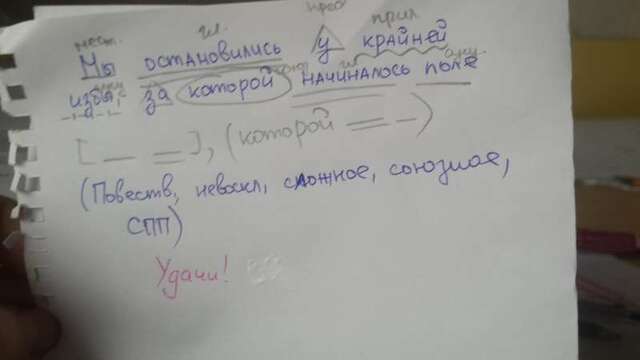 мест. гл. пред прил
Мы остановились у крайней
сущ. гл. сущ.
избы, за которой начиналось поле
[ __ == ], (которой == — )
(Повеств, невоскл, сложное, союзное,
СПП)
Удачи!